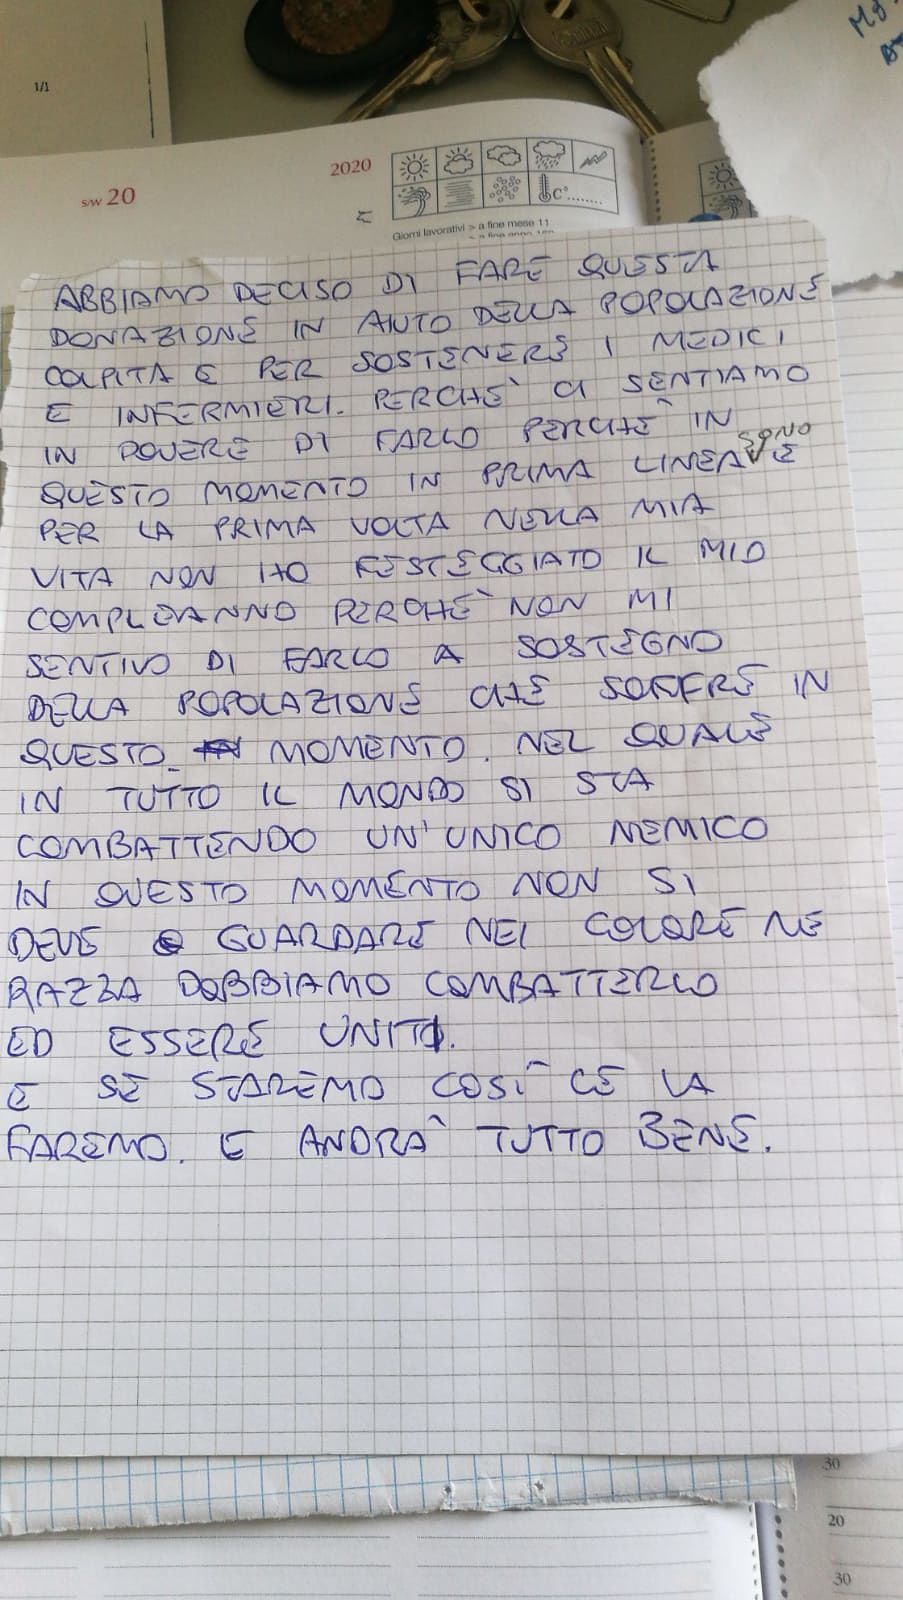 1/1
s/w 20
2020
C°........
Giorni lavorativi > a fine mese 11
ABBIAMO DECISO DI FARE QUESTA
DONAZIONE IN AIUTO DELLA POPOLAZIONE
COLPITA E PER SOSTENERE I MEDICI
E INFERMIERI. PERCHÈ CI SENTIAMO
IN DOVERE DI FARLO PERCHÈ IN
SONO
QUESTO MOMENTO IN PRIMA LINEA E
PER LA PRIMA VOLTA NELLA MIA
VITA NON HO FESTEGGIATO IL MIO
COMPLEANNO PERCHÈ NON MI
SENTIVO DI FARLO A SOSTEGNO
DELLA POPOLAZIONE CHE SOFFRE IN
QUESTO MOMENTO. NEL QUALE
IN TUTTO IL MONDO SI STA
COMBATTENDO UN'UNICO NEMICO
IN QUESTO MOMENTO NON SI
DEVE GUARDARE NEL COLORE NE
RAZZA DOBBIAMO COMBATTERLO
ED ESSERE UNITI.
E SE STAREMO COSÌ CE LA
FAREMO. E ANDRÀ TUTTO BENE.
30
20
30